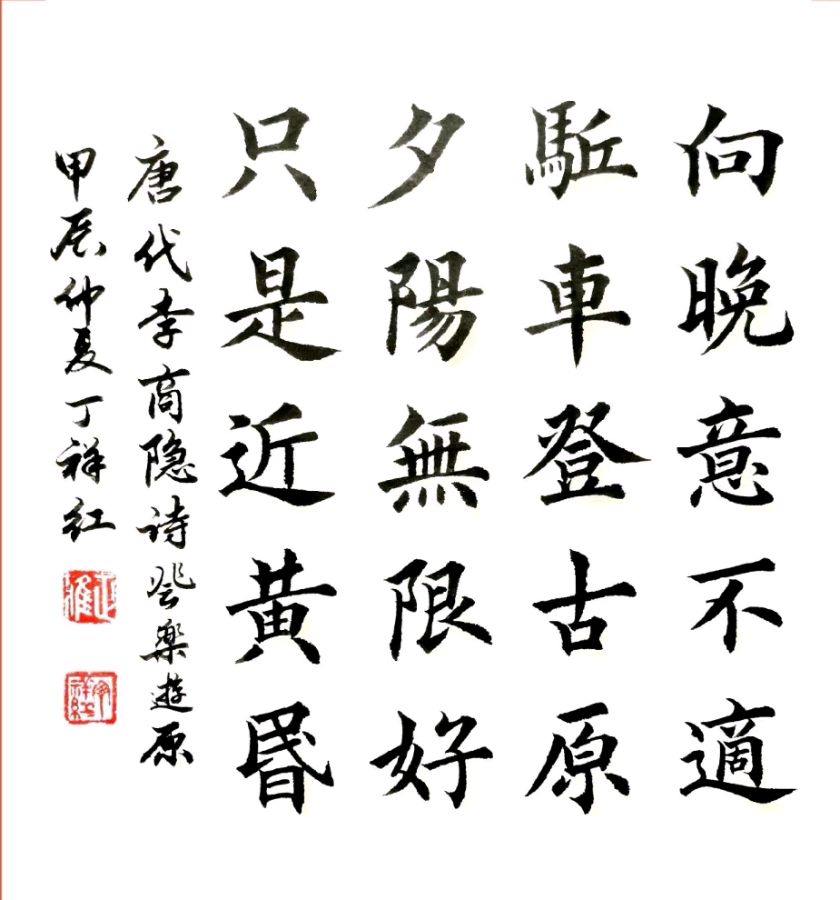 向晚意不適
駈車登古原
夕陽無限好
只是近黄昬
唐代李商隐诗登楽遊原
甲辰仲夏丁祥红